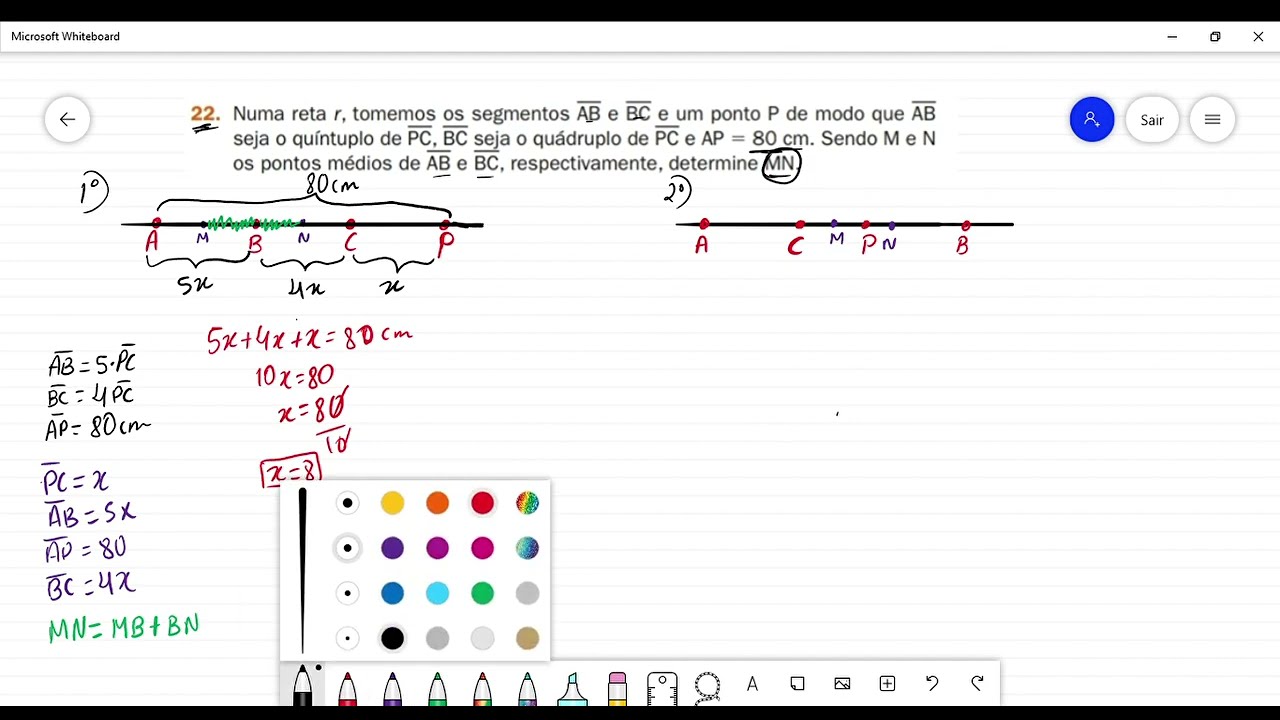 Microsoft Whiteboard
22. Numa reta r, tomemos os segmentos A̅B̅ e B̅C̅ e um ponto P de modo que A̅B̅
seja o quíntuplo de P̅C̅, B̅C̅ seja o quádruplo de P̅C̅ e AP = 80 cm. Sendo M e N
os pontos médios de A̅B̅ e B̅C̅, respectivamente, determine M̅N̅.
Sair
1º)
80cm
A M B N C P
5x 4x x
2º)
A C M P N B
5x+4x+x=80cm
10x=80
x=80/10
x=8
A̅B̅=5·P̅C̅
B̅C̅=4P̅C̅
A̅P̅=80cm
P̅C̅=x
A̅B̅=5x
A̅P̅=80
B̅C̅=4x
MN=MB+BN
A